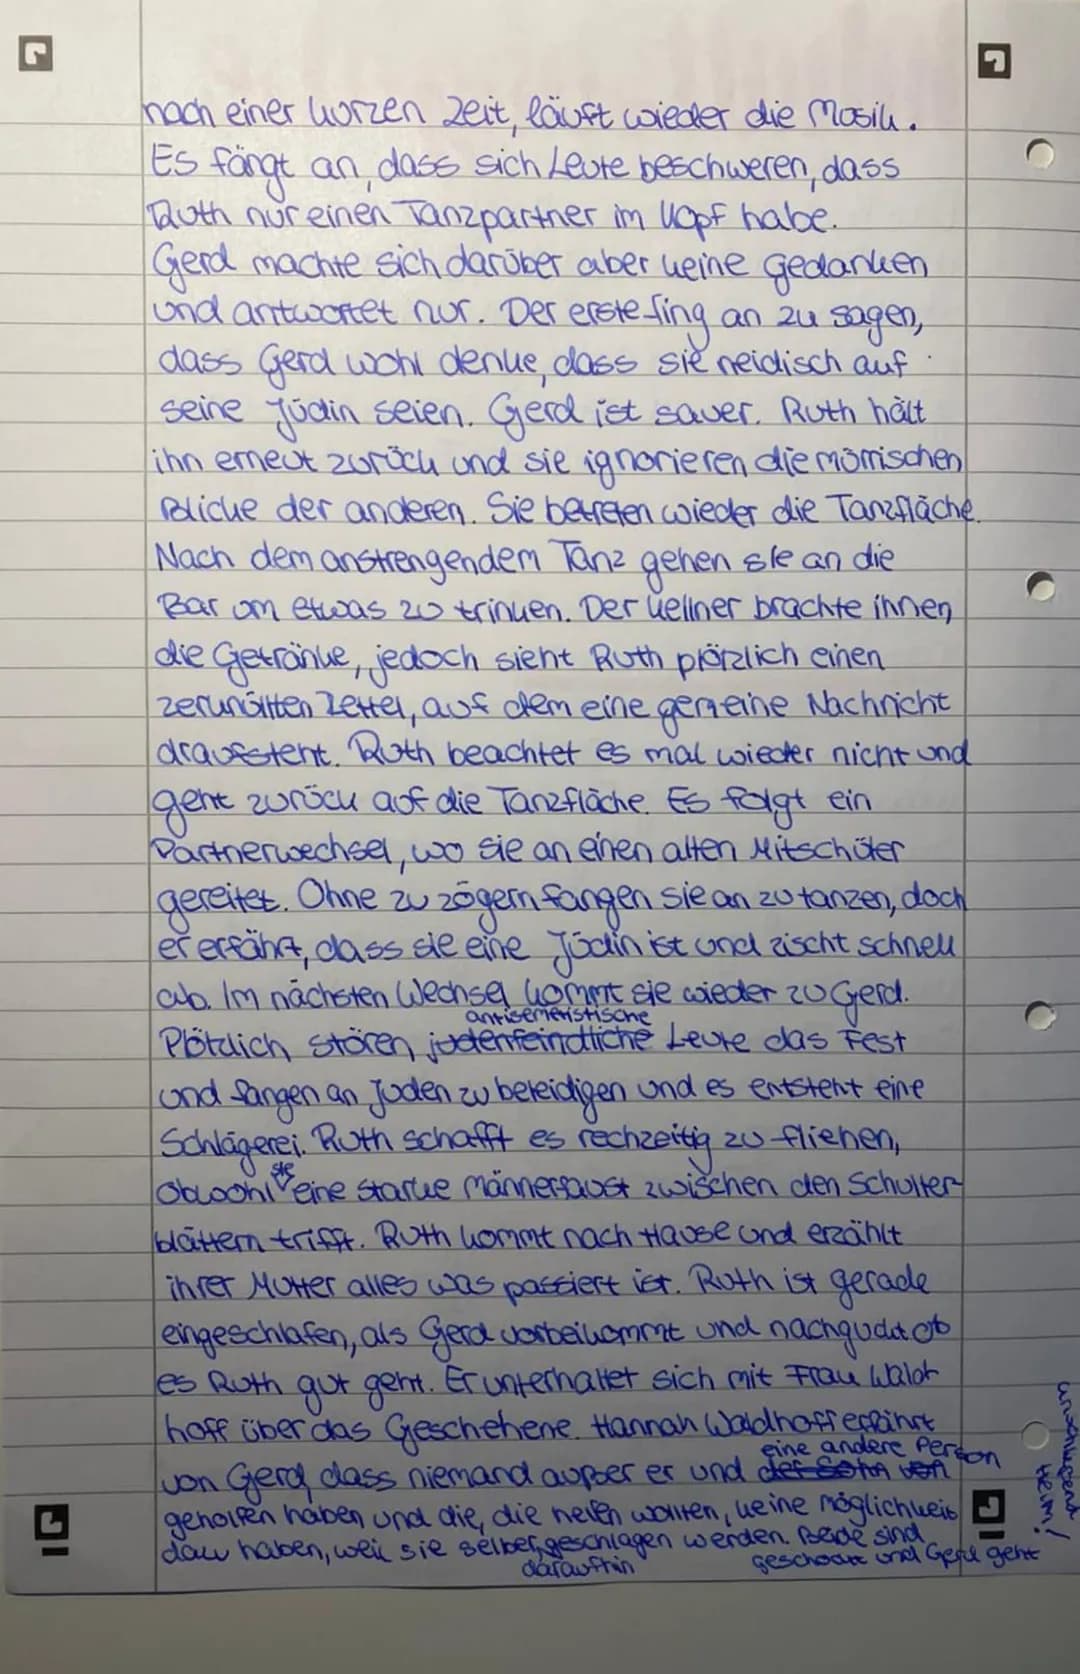 nach einer kurzen Zeit, läuft wieder die Musik.
Es fängt an, dass sich Leute beschweren, dass
Ruth nur einen Tanzpartner im Kopf habe.
Gerd machte sich darüber aber keine Gedanken
und antwortet nur. Der erste fing an zu sagen,
dass Gerd wohl denke, dass sie neidisch auf
seine Jüdin seien. Gerd ist sauer. Ruth hält
ihn erneut zurück und sie ignorieren die mürrischen
Blicke der anderen. Sie betreten wieder die Tanzfläche.
Nach dem anstrengendem Tanz gehen sie an die
Bar um etwas zu trinken. Der Kellner brachte ihnen
die Getränke, jedoch sieht Ruth plötzlich einen
zerknüllten Zettel, auf dem eine gemeine Nachricht
draufsteht. Ruth beachtet es mal wieder nicht und
geht zurück auf die Tanzfläche. Es folgt ein
Partnerwechsel, wo sie an einen alten Mitschüler
gereitet. Ohne zu zögern fangen sie an zu tanzen, doch
er erfährt, dass sie eine Jüdin ist und zischt schnell
ab. Im nächsten Wechsel kommt sie wieder zu Gerd.
antisemetistische
Plötzlich stören judenfeindtliche Leute das Fest
und fangen an Juden zu beleidigen und es entsteht eine
Schlägerei. Ruth schafft es rechzeitig zu fliehen,
obwohl sie eine starke Männerfaust zwischen den Schulter-
blättern trifft. Ruth kommt nach Hause und erzählt
ihrer Mutter alles was passiert ist. Ruth ist gerade
eingeschlafen, als Gerd vorbeikommt und nachguckt ob
es Ruth gut geht. Er unterhaltet sich mit Frau Wald
hoff über das Geschehene. Hannah Waldhoff erfährt
eine andere Person
von Gerd, dass niemand außer er und der Sohn von
geholfen haben und die, die helfen wollten, keine möglichkeit
dazu haben, weil sie selber geschlagen werden. Beide sind
daraufhin
geschockt und Gerd geht
Heim!